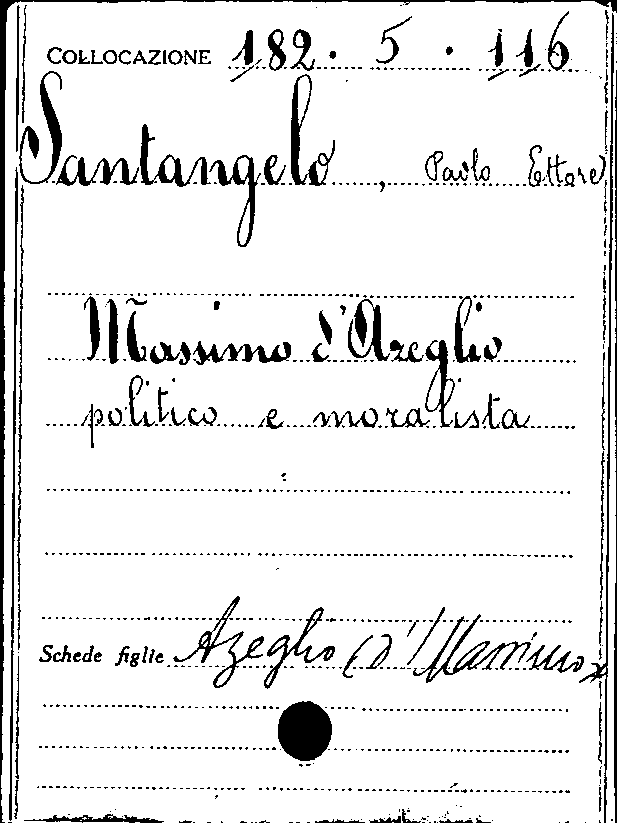 COLLOCAZIONE 182. 5. 116
Santangelo, Paolo Ettore
Massimo d'Azeglio
politico e moralista
Schede figlie Azeglio (d') Massimo